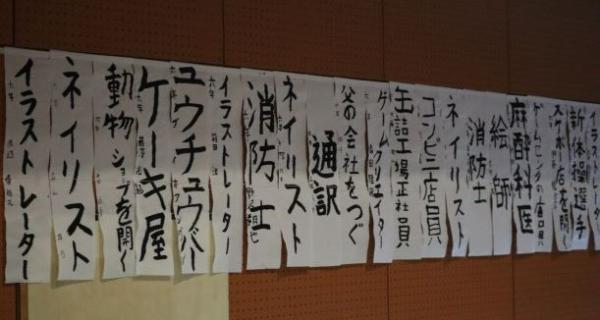 イラストレーター
新体操選手
スケボ店を開く
麻酔科医
絵師
消防士
ネイリスト
コンビニ店員
缶詰工場正社員
ゲームクリエイター
父の会社をつぐ
通訳
ネイリスト
消防士
イラストレーター
ユウチュウバー
ケーキ屋
動物ショップを開く
ネイリスト
イラストレーター